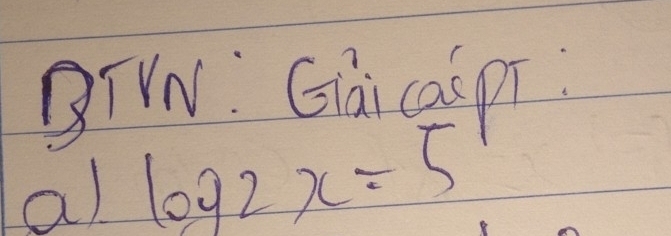 BTVN: Giải các PT:
a) log2 x = 5